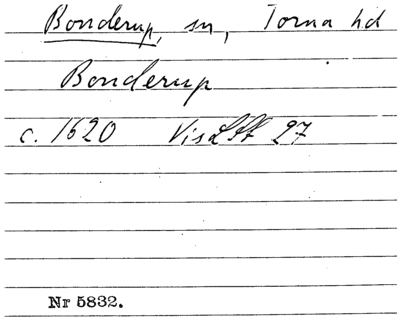 Bonderup, sn, Torna hd
Bonderup
c. 1620 VisLSt 27
Nr 5832.